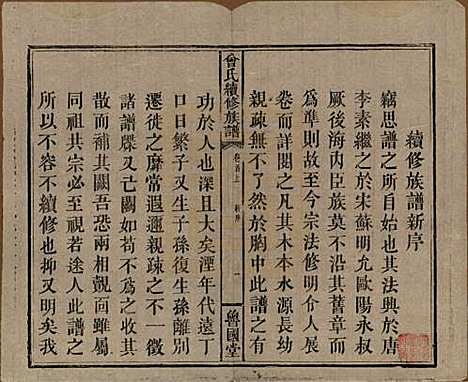 續修族譜新序
竊思譜之所自始也其法興於唐
李素繼之於宋蘇明允歐陽永叔
厥後海內臣族莫不沿其舊章而
爲準則故至今宗法修明令人展
卷而詳閱之凡其木本水源長幼
親疎無不了然於胸中此譜之有
曾氏續修族譜
卷首上
新序
一
魯國堂
功於人也深且大矣湮年代遠丁
口日繁子又生孫孫復生孫離別
遷徙之靡常遐邇親疎之不一徵
諸譜牒已有闕如苟不及時收其
散而補其闕吾恐兩相覿面雖屬
同祖共宗必至視若途人此譜之
所以不容不續修也抑又明矣我